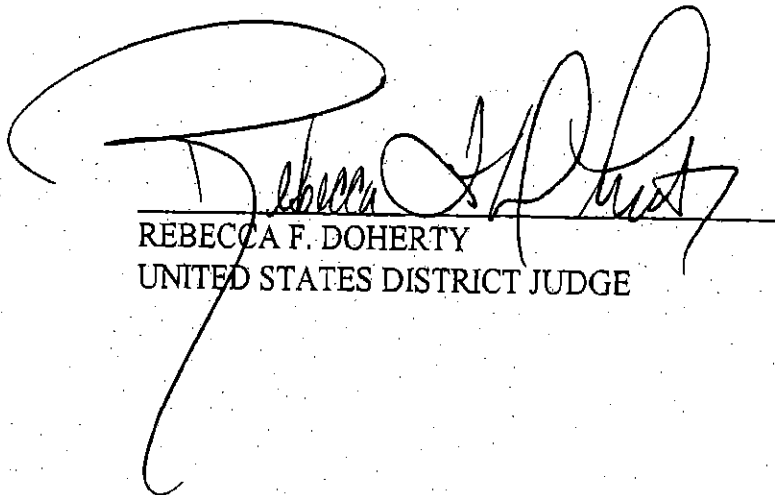 Rebecca F Doherty
REBECCA F. DOHERTY
UNITED STATES DISTRICT JUDGE